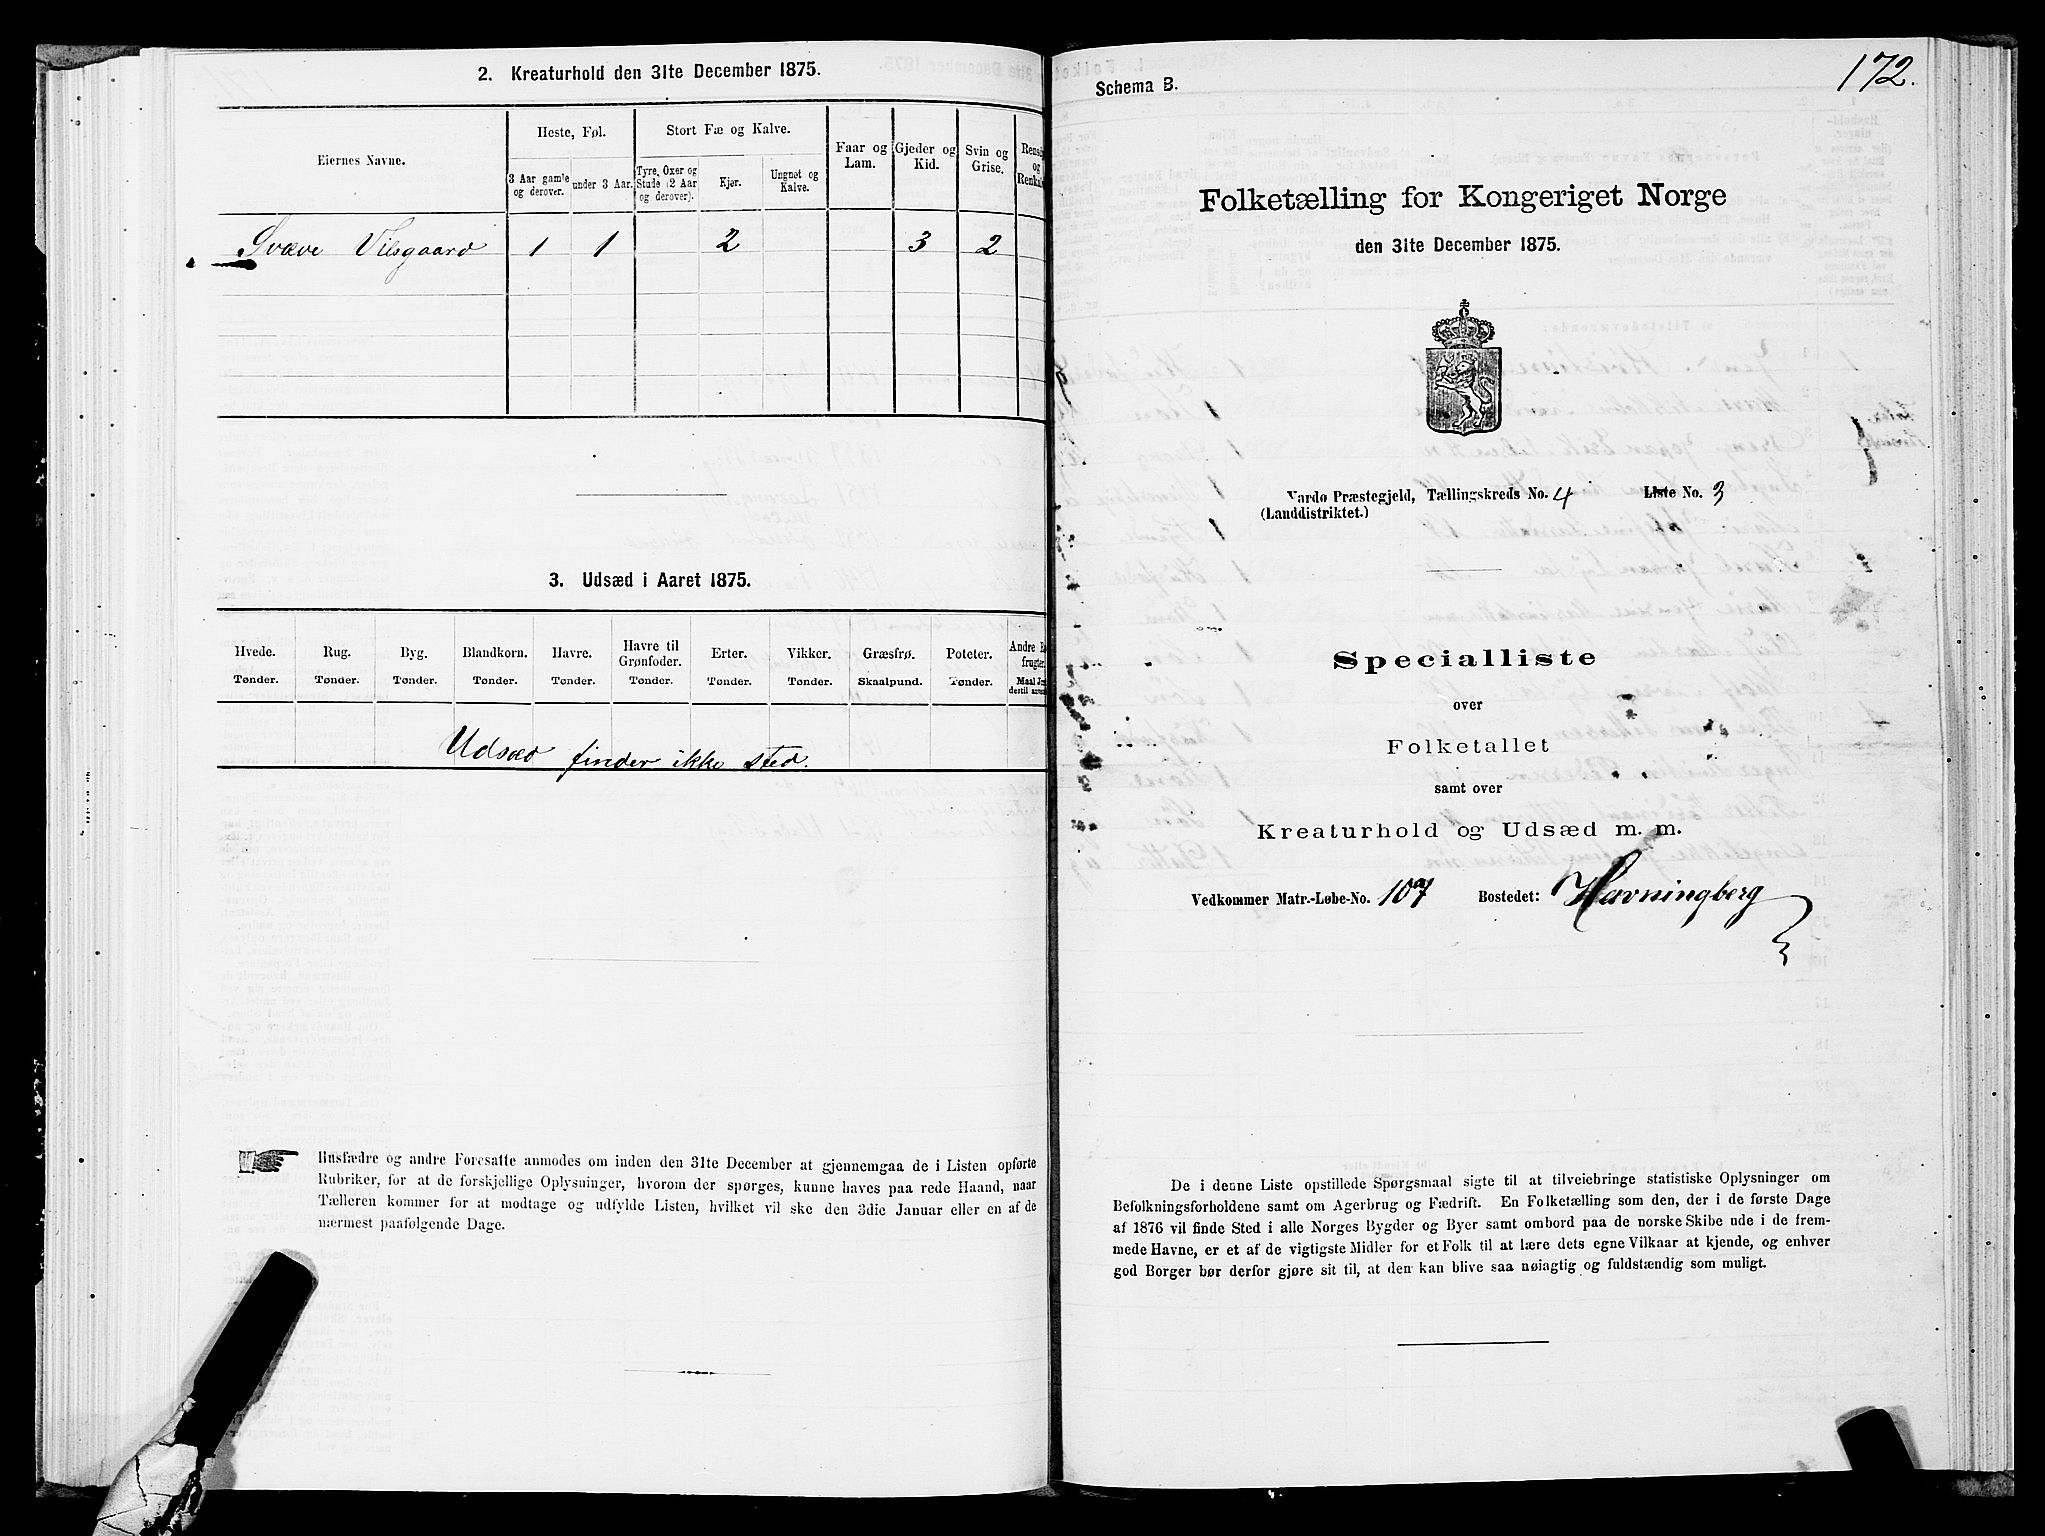 2. Kreaturhold den 31te December 1875.
Eiernes Navne.
Heste, Føl.
Stort Fæ og Kalve.
Faar og Lam.
Gjeder og Kid.
Svin og Grise.
3 Aar gamle og derover.
under 3 Aar.
Tyre, Oxer og Stude (2 Aar og derover).
Kjør.
Ungnøt og Kalve.
Vilsgaard 1 1 2 3 2
3. Udsæd i Aaret 1875.
Hvede. Rug. Byg. Blandkorn. Havre. Havre til Grønfoder. Erter. Vikker. Græsfrø. Poteter.
Tønder. Tønder. Tønder. Tønder. Tønder. Tønder. Tønder. Tønder. Skaalpund. Tønder.
Udsæd finder ikke sted.
Husfædre og andre Foresatte anmodes om inden den 31te December at gjennemgaa de i Listen opførte
Rubriker, for at de forskjellige Oplysninger, hvorom der spørges, kunne haves paa rede Haand, naar
Tælleren kommer for at modtage og udfylde Listen, hvilket vil ske den 3die Januar eller en af de
nærmest paafølgende Dage.
172.
Schema B.
Folketælling for Kongeriget Norge
den 31te December 1875.
Vardø Præstegjeld, Tællingskreds No. 4 Liste No. 3
(Landdistriktet.)
Specialliste
over
Folketallet
samt over
Kreaturhold og Udsæd m. m.
Vedkommer Matr.-Løbe-No. 107 a Bostedet: Havningberg
De i denne Liste opstillede Spørgsmaal sigte til at tilveiebringe statistiske Oplysninger om
Befolkningsforholdene samt om Agerbrug og Fædrift. En Folketælling som den, der i de første Dage
af 1876 vil finde Sted i alle Norges Bygder og Byer samt ombord paa de norske Skibe ude i de frem-
mede Havne, er et af de vigtigste Midler for et Folk til at lære dets egne Vilkaar at kjende, og enhver
god Borger bør derfor gjøre sit til, at den kan blive saa nøiagtig og fuldstændig som muligt.